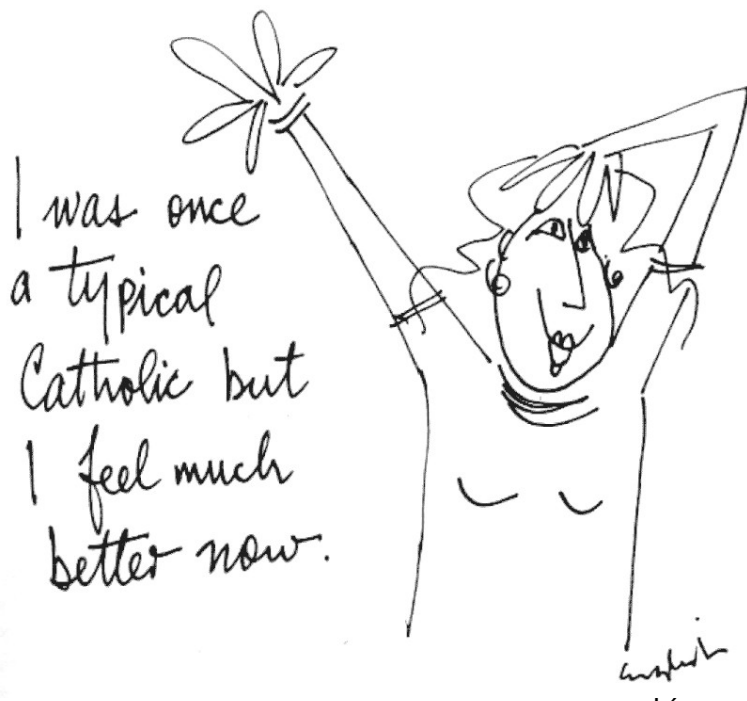 I was once
a typical
Catholic but
I feel much
better now.